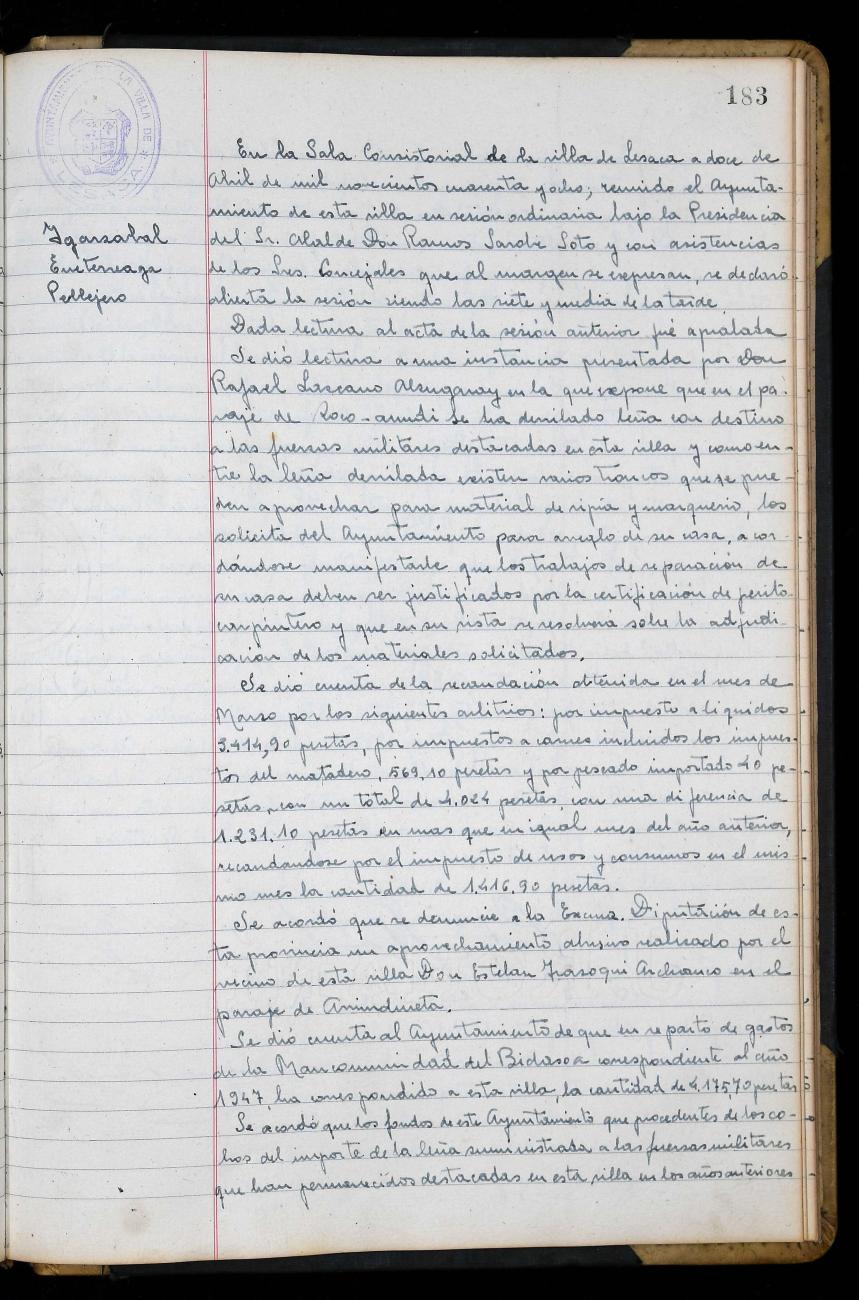 183
AYUNTAMIENTO DE LA VILLA DE
* LESACA *
Igarzabal
Errterreaga
Pellejero
En la Sala Consistorial de la villa de Lesaca a doce de
Abril de mil novecientos cuarenta y ocho; reunido el Ayunta-
miento de esta villa en sesión ordinaria bajo la Presidencia
del Sr. Alcalde Don Ramos Sarobe Soto y con asistencias
de los Sres. Concejales que al margen se expresan, se declaró
abierta la sesión siendo las siete y media de la tarde.
Dada lectura al acta de la sesión anterior fué aprobada
Se dió lectura a una instancia presentada por Don
Rafael Lazcano Alzugaray en la que expone que en el pa-
raje de Roco-arundi se ha derribado leña con destino
a las fuerzas militares destacadas en esta villa y como en-
tre la leña derribada existen varios troncos que se pue-
den aprovechar para material de ripia y marquerio, los
solicita del Ayuntamiento para areglo de su casa, acor-
dándose manifestarle que los trabajos de reparación de
su casa deben ser justificados por la certificación de perito
carpintero y que en su vista se resolverá sobre la adjudi-
cación de los materiales solicitados.
Se dió cuenta de la recaudación obtenida en el mes de
Marzo por los siguientes arbitrios: por impuesto a liquidos
3.414,90 pesetas, por impuestos a carnes incluidos los impues-
tos del matadero, 569,10 pesetas y por pescado importado 40 pe-
setas, con un total de 4.024 pesetas, con una diferencia de
1.231,10 pesetas en mas que en igual mes del año anterior,
recaudandose por el impuesto de usos y consumos en el mis-
mo mes la cantidad de 1.416,90 pesetas.
Se acordó que se denuncie a la Excma. Diputación de es-
ta provincia un aprovechamiento abusivo realizado por el
vecino de esta villa Don Esteban Irazoqui en el
paraje de Arrindineta.
Se dió cuenta al Ayuntamiento de que en reparto de gastos
de la Mancomunidad del Bidasoa correspondiente al año
1947, ha correspondido a esta villa, la cantidad de 4.175,70 pesetas
Se acordó que los fondos de este Ayuntamiento que procedentes de los co-
bros del importe de la leña suministrada a las fuerzas militares
que han permanecidos destacadas en esta villa en los años anteriores